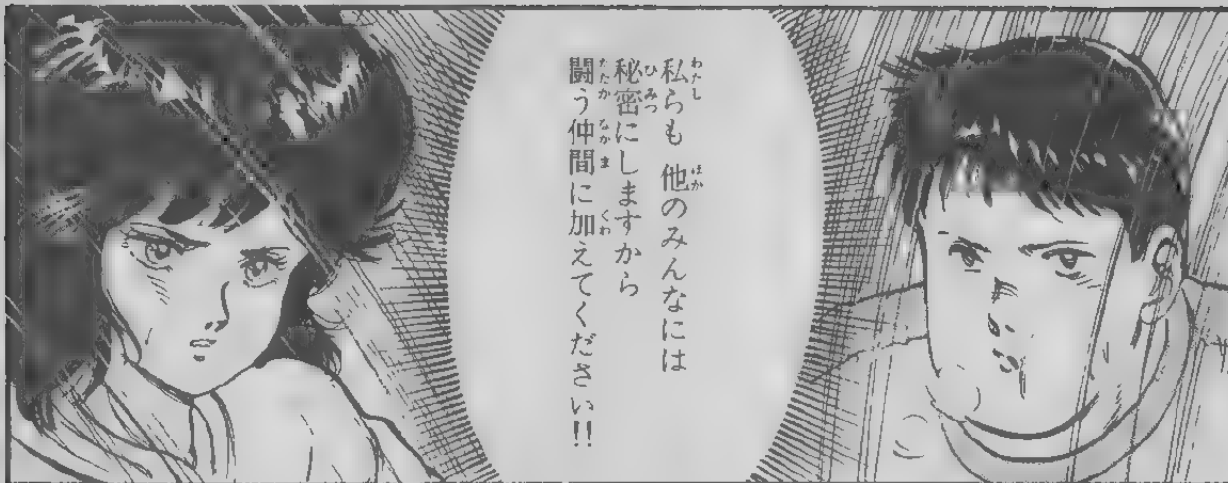 私らも 他のみんなには
秘密にしますから
闘う仲間に加えてください!!